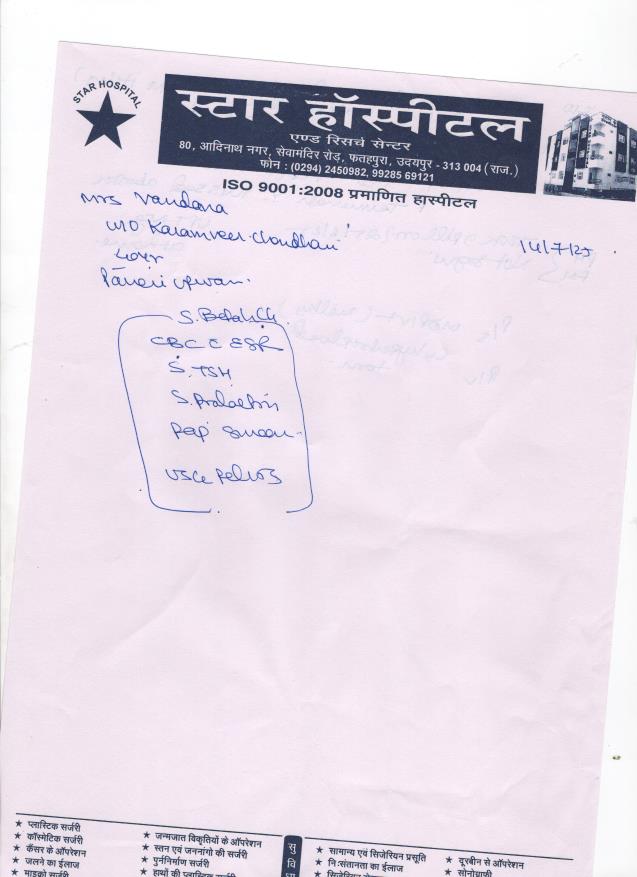 STAR HOSPITAL
स्टार हॉस्पीटल
एण्ड रिसर्च सेन्टर
80, आदिनाथ नगर, सेवामंदिर रोड़, फतहपुरा, उदयपुर - 313 004 (राज.)
फोन : (0294) 2450982, 99285 69121
ISO 9001:2008 प्रमाणित हास्पीटल
Mrs Vandana
W/O Karamveer Choudhari
14/7/25
CBC C ESR
S. TSH
S. Prolactin
Pap Smear
USG Pelvis
★ प्लास्टिक सर्जरी
★ कॉस्मेटिक सर्जरी
★ कैंसर के ऑपरेशन
★ जलने का ईलाज
★ माइक्रो सर्जरी
★ जन्मजात विकृतियों के ऑपरेशन
★ स्तन एवं जननांगो की सर्जरी
★ पुर्ननिर्माण सर्जरी
★ हाथों की प्लास्टिक
सु
वि
★ सामान्य एवं सिजेरियन प्रसूति
★ नि:संतानता का ईलाज
★ सिजेरियन
★ दूरबीन से ऑपरेशन
★ सोनोग्राफी